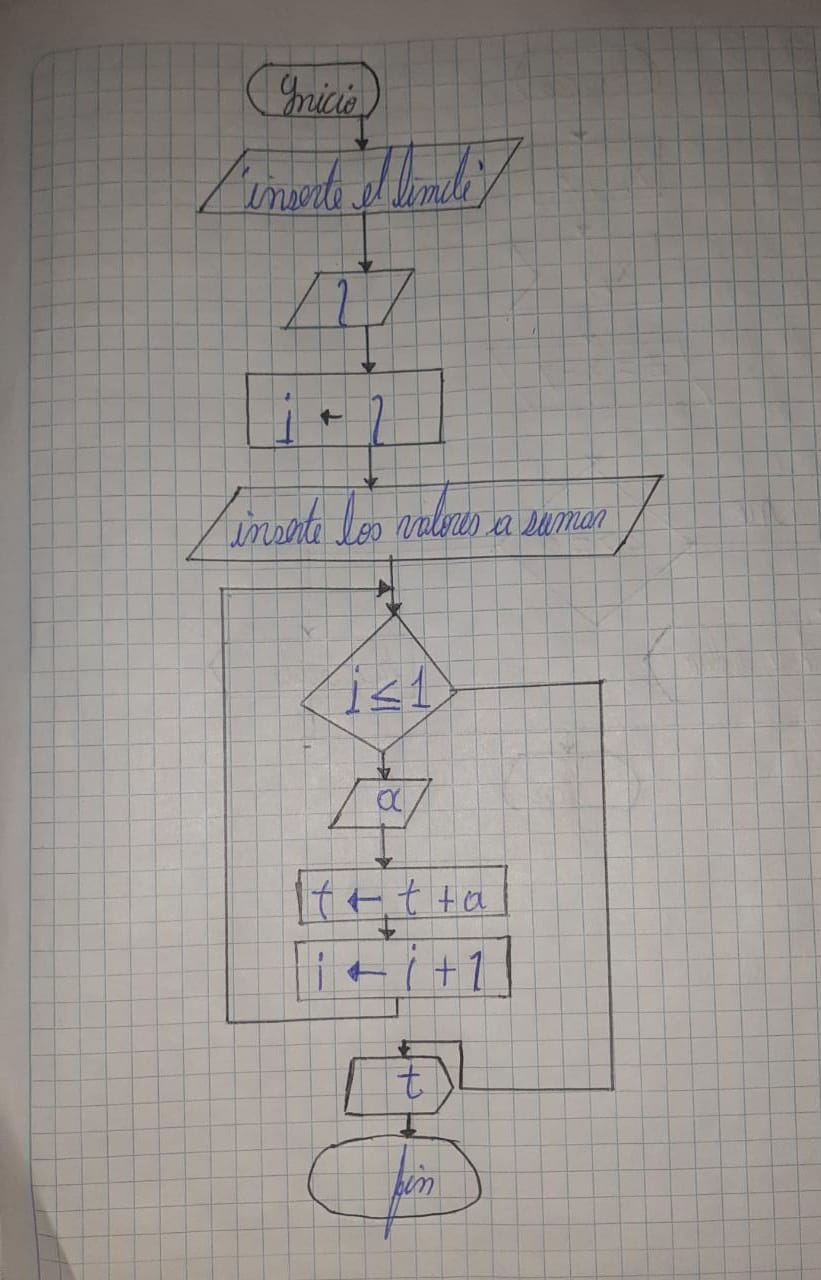 Inicio
"inserte el limite"
l
i ← 1
inserte los valores a sumar
i ≤ 1
a
t ← t + a
i ← i + 1
t
fin